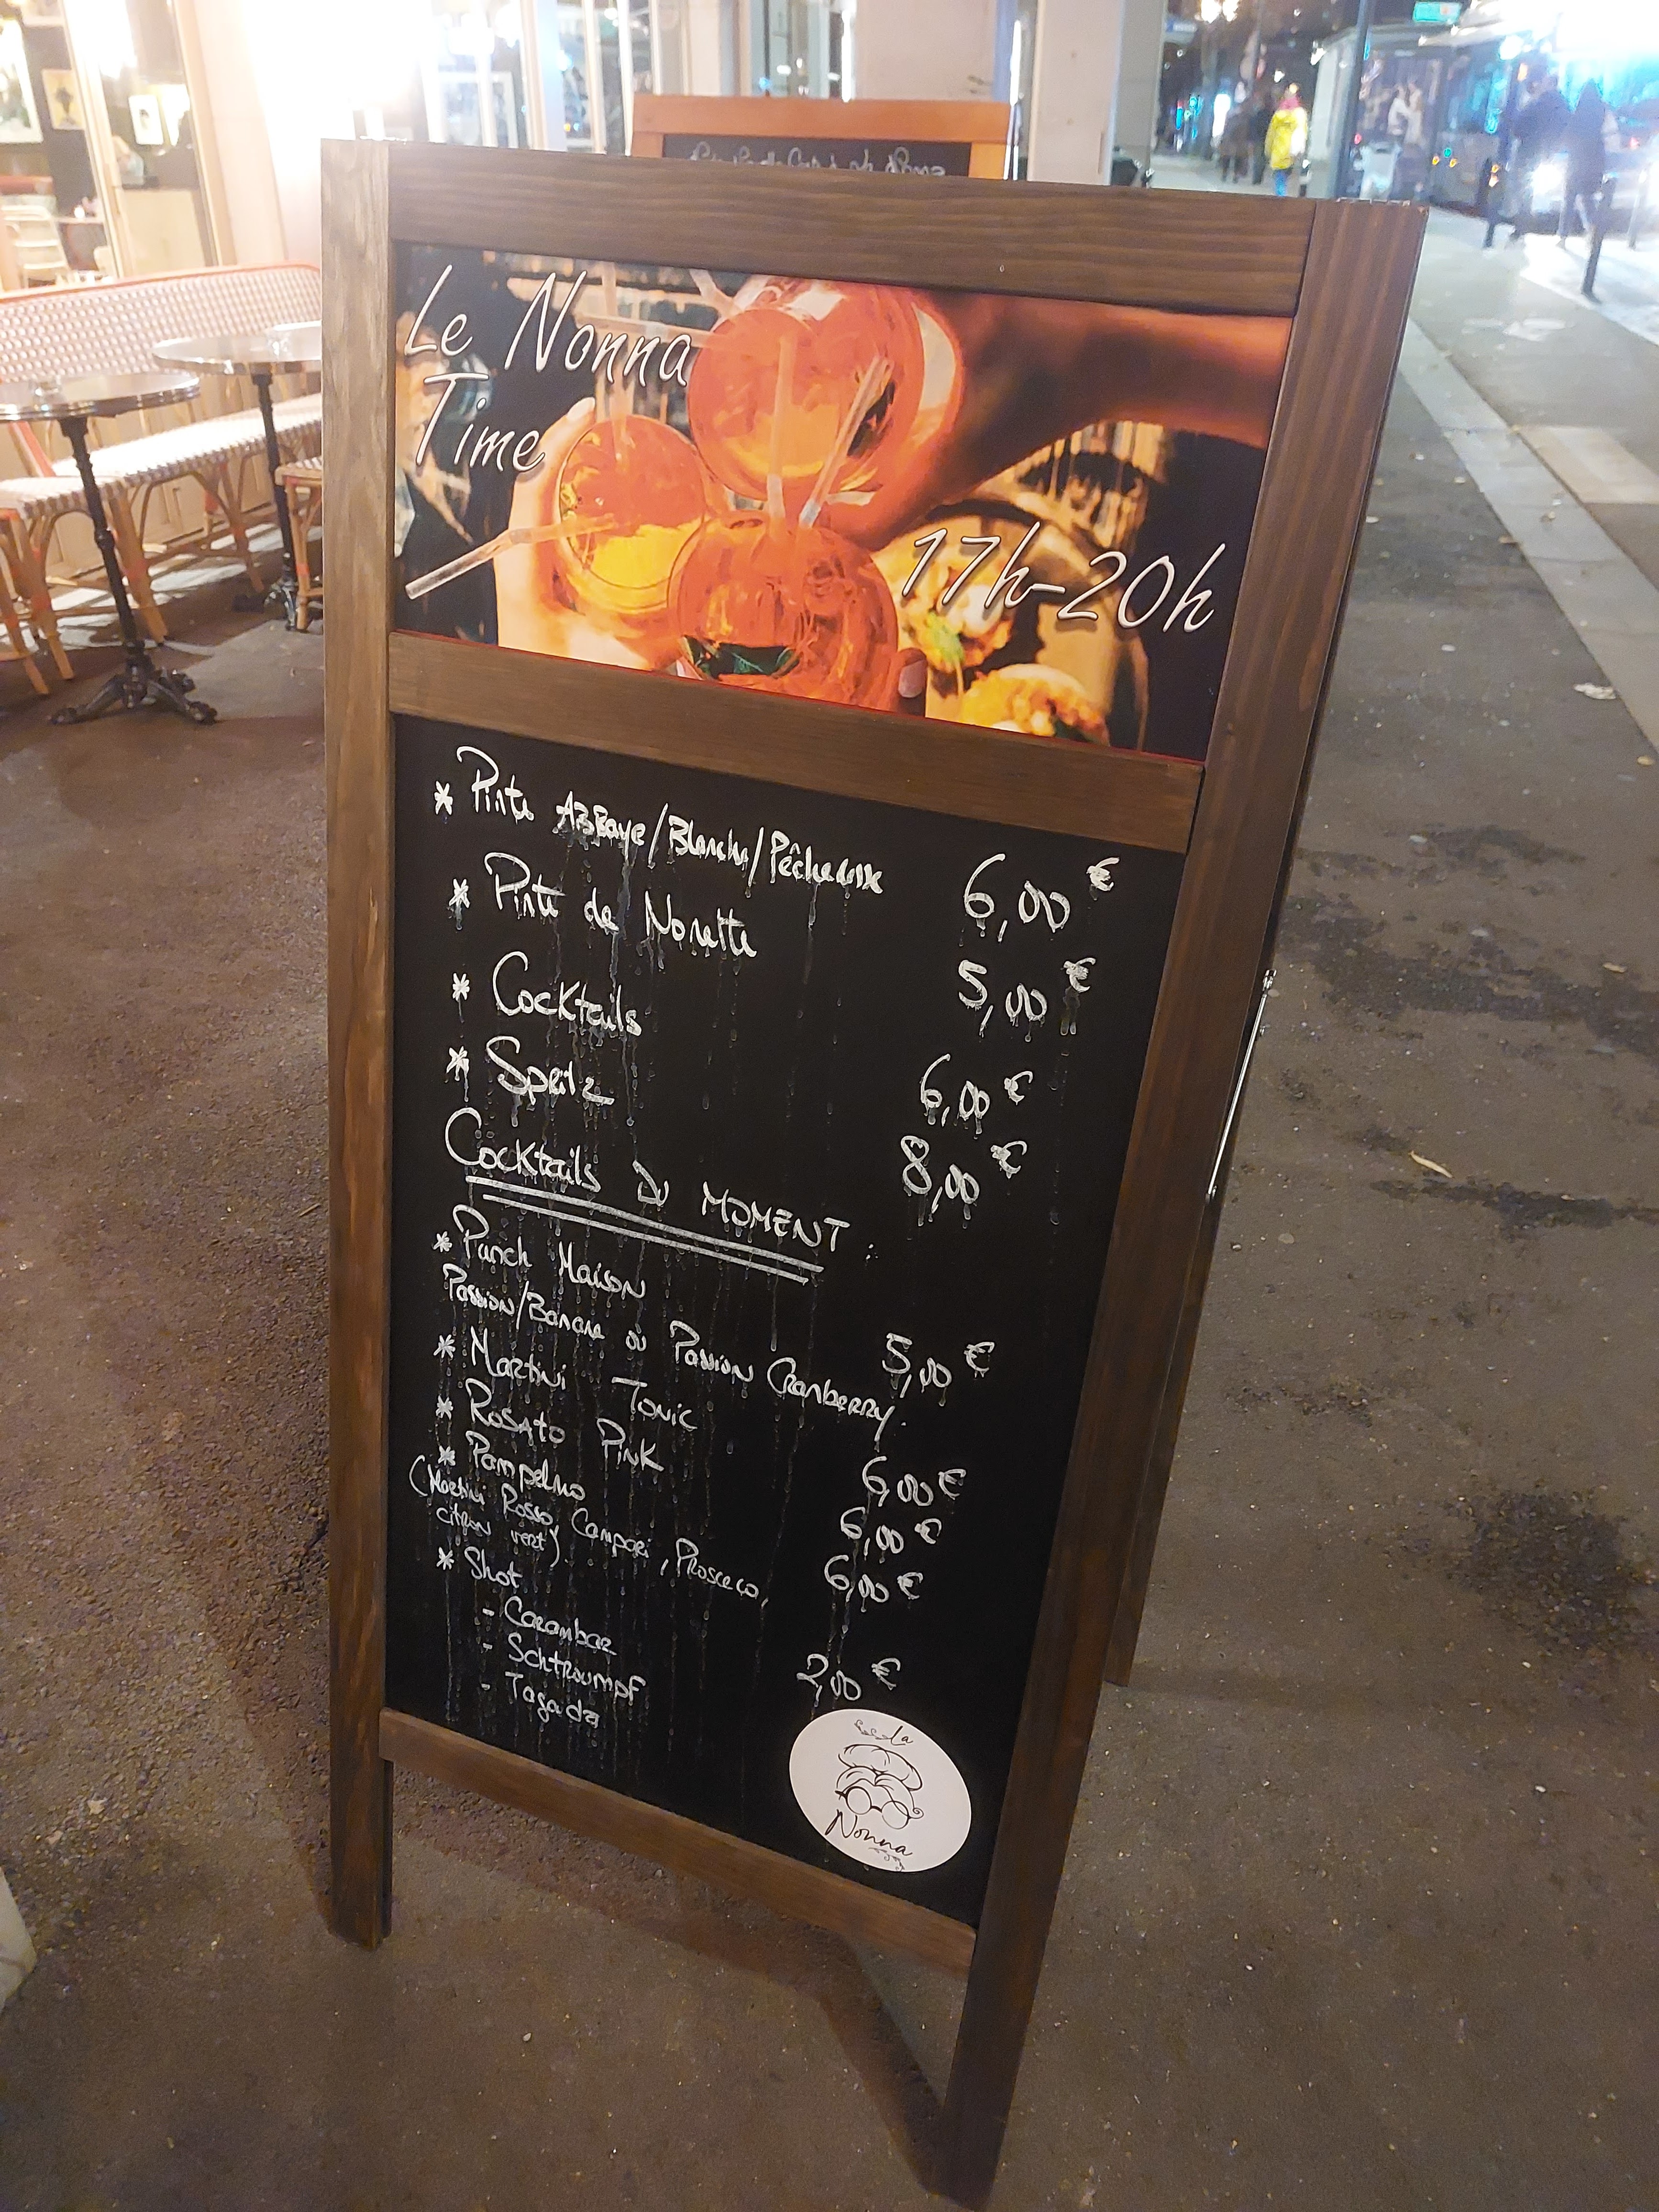 Le Nonna
Time
17h-20h
* Pinte Abbaye/Blanche/Pêcheuse 6,00 €
* Pinte de Nonette 5,00 €
* Cocktails 6,00 €
* Spritz 8,00 €
Cocktails du MOMENT :
* Punch Maison 5,00 €
Passion/Banane ou Passion Cranberry.
* Martini Tonic 6,00 €
* Rosato Pink 6,00 €
* Pampelmo 6,00 €
(Martini Rosso, Campari, Prosecco,
citron vert)
* Shot 2,00 €
- Carambar
- Schtroumpf
- Tagada
La
Nonna